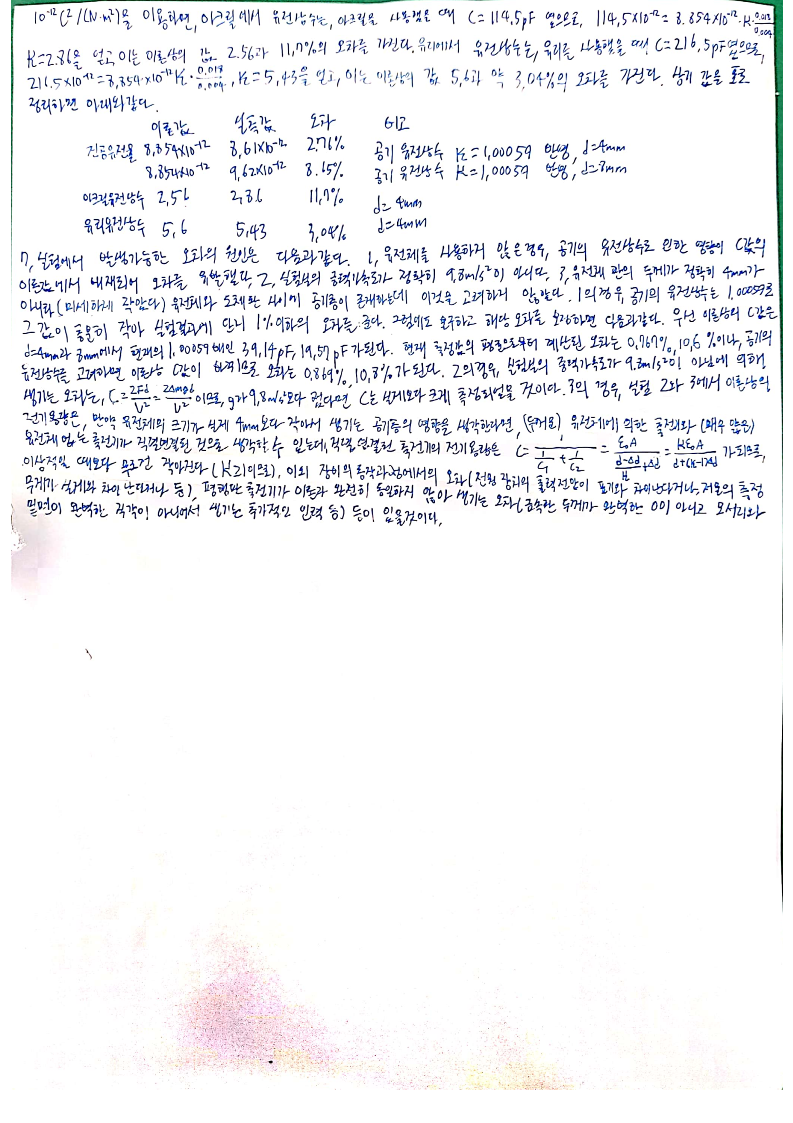 10⁻¹²C²/(N·m²)을 이용하면, 아크릴에서 유전상수는, 아크릴을 사용했을 때 C=114.5pF 였으므로, 114.5×10⁻¹²=8.854×10⁻¹²·K·0.018/0.004
K=2.86을 얻고, 이는 이론상의 값 2.56과 11.7%의 오차를 가진다. 유리에서 유전상수는, 유리를 사용했을 때 C=216.5pF였으므로,
216.5×10⁻¹²=8.854×10⁻¹²K·0.018/0.004, K=5.43을 얻고, 이는 이론상의 값 5.6과 약 3.04%의 오차를 가진다. 상기 값을 표로
정리하면 아래와 같다.
이론값 실측값 오차 비고
진공유전율 8.854×10⁻¹² 8.61×10⁻¹² 2.76% 공기 유전상수 K=1.00059 반영, d=4mm
8.854×10⁻¹² 9.62×10⁻¹² 8.65% 공기 유전상수 K=1.00059 반영, d=8mm
아크릴유전상수 2.56 2.86 11.7% d=4mm
유리유전상수 5.6 5.43 3.04% d=4mm
7. 실험에서 발생가능한 오차의 원인은 다음과 같다. 1. 유전체를 사용하지 않은 경우, 공기의 유전상수로 인한 영향이 C값의
이론값에서 배제되어 오차를 유발했다. 2. 실험실의 중력가속도가 정확히 9.8m/s²이 아니다. 3. 유전체 판의 두께가 정확히 4mm가
아니라 (미세하게 작았다) 유전체와 도체판 사이에 공기층이 존재하는데 이것을 고려하지 않았다. 1의 경우 공기의 유전상수는 1.00059로
그 값이 충분히 작아 실험결과에 단지 1% 이하의 오차를 준다. 그럼에도 불구하고 해당 오차를 보정하면 다음과 같다. 우선 이론상의 C값은
d=4mm과 8mm에서 현재의 1.00059배인 39.14pF, 19.57pF가 된다. 현재 측정값의 평균으로부터 계산된 오차는 0.767%, 10.6%이나, 공기의
유전상수를 고려하면 이론상 C값이 바뀌므로 오차는 0.869%, 10.8%가 된다. 2의 경우, 실험실의 중력가속도가 9.8m/s²이 아님에 의해
생기는 오차는, C=2Fd/V²=2Δmgd/V²이므로, g가 9.8m/s²보다 컸다면 C는 실제보다 크게 측정되었을 것이다. 3의 경우, 실험 2와 3에서 이론상의
전기용량은, 만약 유전체의 크기가 실제 4mm보다 작아서 생기는 공기층의 영향을 생각한다면, (두께요) 유전체에 의한 축전기와 (매우 얇은)
유전체 없는 축전기가 직렬연결된 것으로 생각할 수 있는데, 직렬 연결된 축전기의 전기용량은 C=1/(1/C₁+1/C₂)=ε₀A/((d-Δd)/K+Δd)=Kε₀A/(d+(K-1)Δd) 가 되므로,
이상적일 때보다 무조건 작아진다 (K≥1이므로). 이외 장치의 동작과정에서의 오차 (전원 장치의 출력전압이 표기와 차이난다거나, 저울의 측정
무게가 실제와 차이 난다거나 등), 평행판 축전기가 이론과 완전히 동일하지 않아 생기는 오차 (금속판 두께가 완벽한 0이 아니고 모서리와
밑면이 완벽한 직각이 아니어서 생기는 추가적인 인력 등) 등이 있을 것이다.